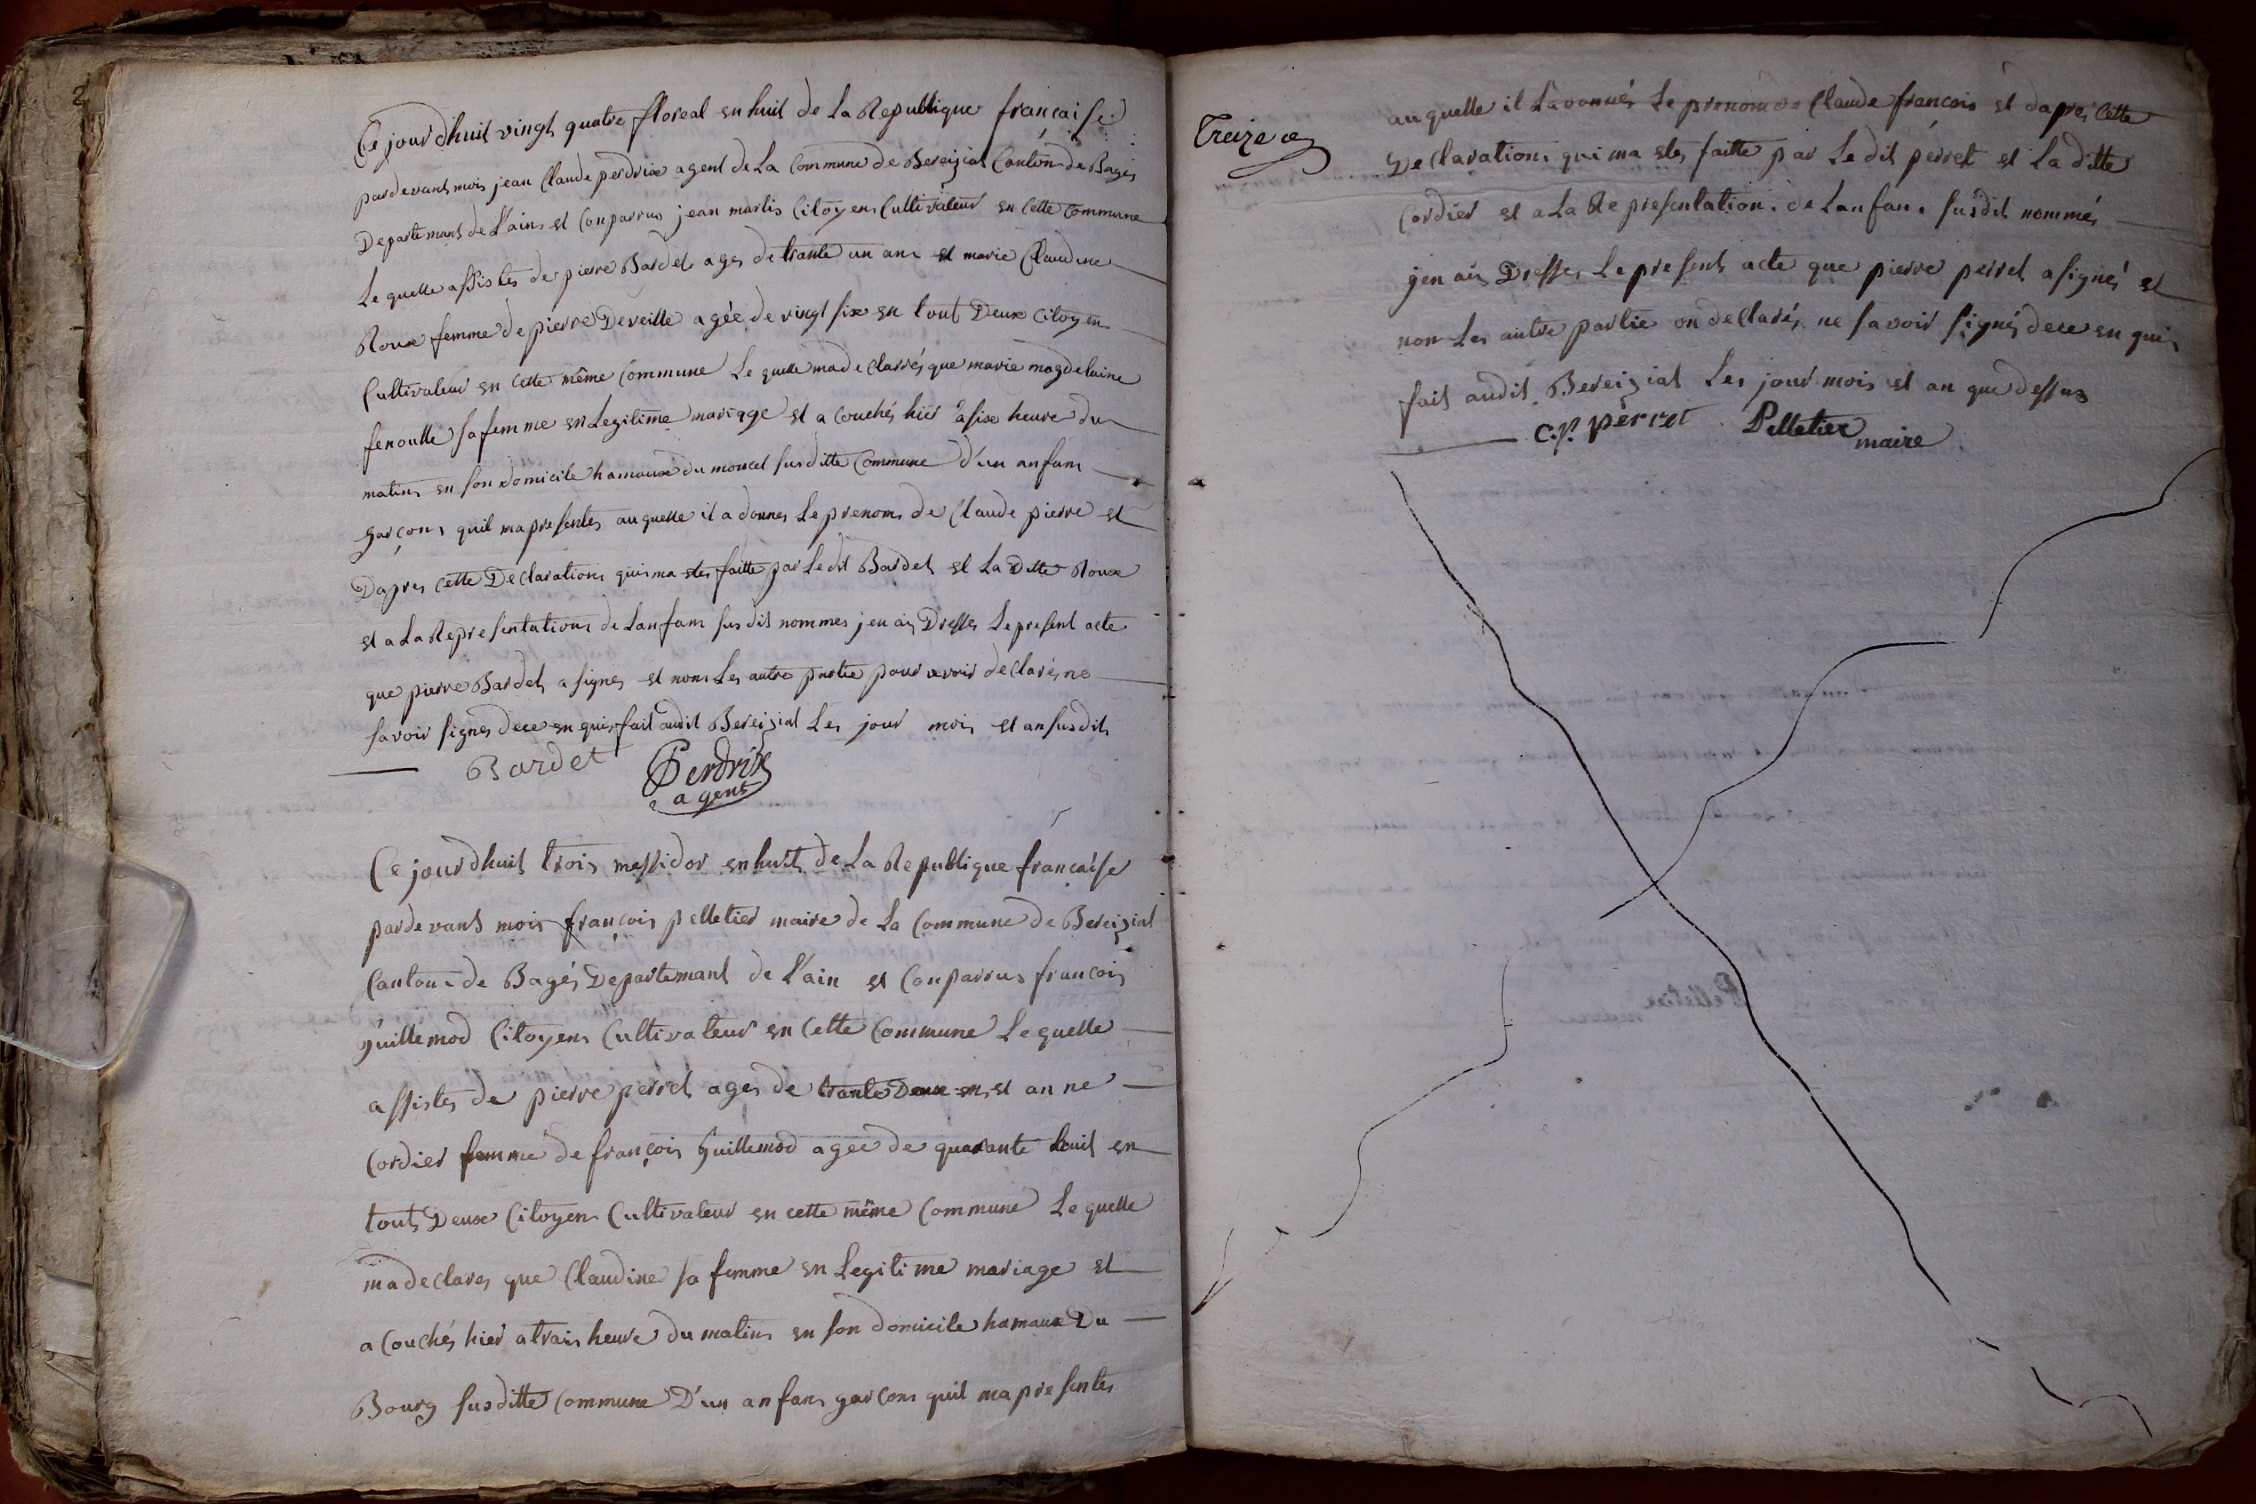 Ce jourdhuit vingt quatre floreal en huit de La Republique francaise
pardevant mois jean Claude perdrix agent de La Commune de Bereiziat Canton de Bagés
Departemant de L'ain et Conparrus jean martis Citoyens Cultivateur en Cette Commune
Le quelle assistes de pierre Bardet ages de trante un ans et marie Claudine
Roux femme de pierre Deveille agée de vingt six en tout Deux Citoyen
Cultivateur en Cette même Commune Le quelle ma declarrés que marie magdelaine
fenoulle sa femme en Legitime mariage et a Couchés hier a six heure du
matins en son domicile hamaux du moucel susditte Commune d'un anfans
garçons quil ma presentes au quelle il a donnes Le prenoms de Claude pierre et
Dapres Cette Declarations quis ma etes faitte par Ledit Bardet et La Ditte Roux
et a La Representations de Lanfans sus dit nommes jen ais Dresses Le present acte
que pierre Bardet a signes et nom Les autre partie pour avoir declarés ne
savoir signes dece en quis fait audit Bereiziat Les jour mois et an susdits
Bardet Perdrix
agent
Ce jourdhuit trois messidor en huit de La Republique francaise
pardevant mois françois pelletier maire de La Commune de Bereiziat
Canton de Bagés Departemant de L'ain et Conparrus francois
guillemod Citoyens Cultivateur en Cette Commune Le quelle
assistes de pierre perret ages de trante Deux ens et anne
Cordier femme de françois guillemod agee de quarante huit en
tout Deux Citoyen Cultivateur en cette même Commune Le quelle
ma declares que Claudine sa femme en Legitime mariage et
a Couchés hier a trais heure du matins en son domicile hamaux Du
Bourg susditte Commune D'un anfans garcons quil ma presentes
Treize
auquelle il La donnés Le prenom de Claude francois et dapres Cette
Declarations qui ma etes faitte par Le dit perret et La ditte
Cordier et a La Representation de Lanfan susdit nommés
jen ais Dresses Le present acte que pierre perret a signés et
nom Les autre partie on declarés ne savoir signés dece en quis
fait audit Bereiziat Les jour mois et an que dessus
c.p. perret Pelletier
maire